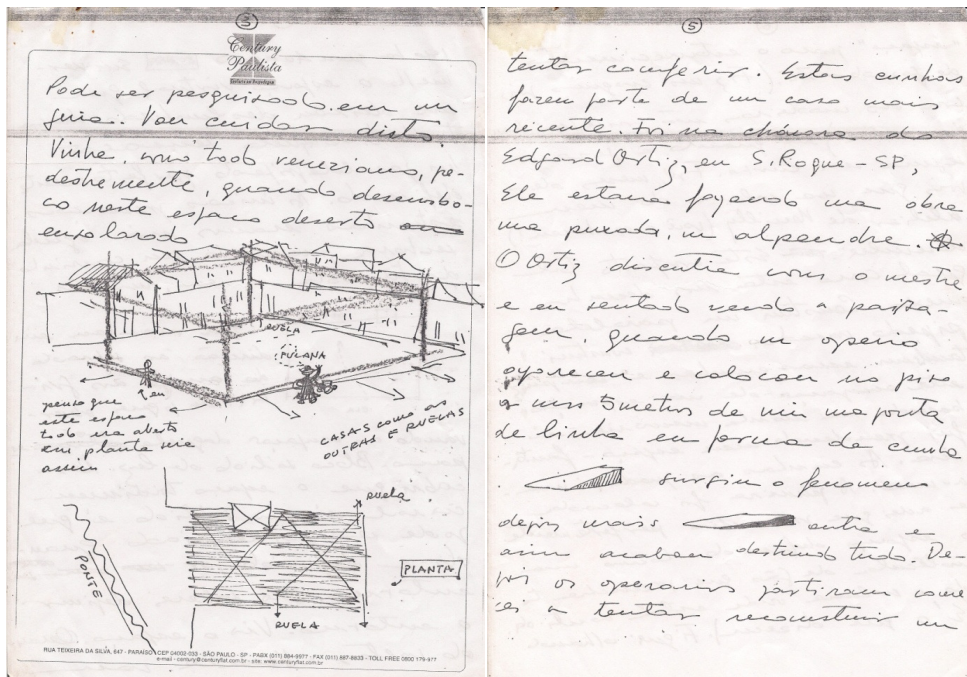 3
Century
Paulista
Pode ser pesquisado em um
guia. Vou cuidar disto.
Vinha, como todo veneziano, pe-
destremente, quando desembo-
co neste espaço deserto
ensolarado
RUELA
FULANA
eu
penso que
este espaço
todo era aberto
em planta seria
assim
CASAS COMO AS
OUTRAS E RUELAS
RUELA
PONTE
PLANTA
RUELA
RUA TEIXEIRA DA SILVA, 647 - PARAÍSO - CEP 04002-033 - SÃO PAULO - SP - PABX (011) 884-9977 - FAX (011) 887-8833 - TOLL FREE 0800 179-977
e-mail - century@centuryflat.com.br - site: www.centuryflat.com.br
5
tentar conferir. Estas cunhas
fazem parte de um caso mais
recente. Foi na chácara do
Edgard Ortiz, em S. Roque - SP,
Ele estava fazendo uma obra
uma puxada, um alpendre.
O Ortiz discutia com o mestre
e eu sentado vendo a paisa-
gem, quando um operário
apareceu e colocou no piso
a uns 5 metros de mim uma porta
de linha em forma de cunha
surgiu o fenomeno
depois mais outra e
assim acabam destruindo tudo. De-
pois os operarios partiram come
cei a tentar reconstruir um